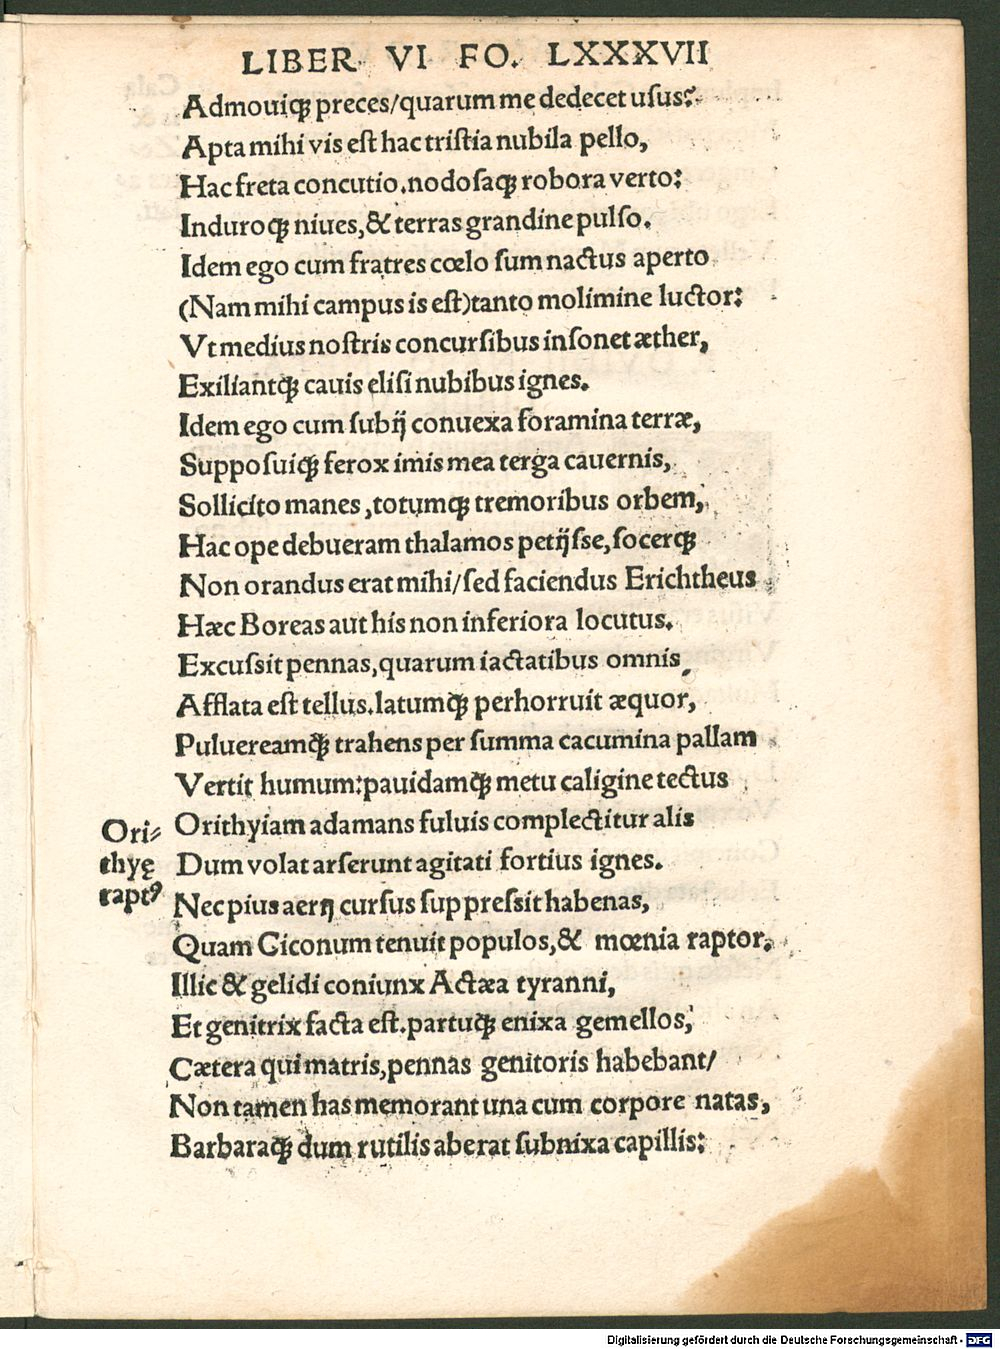 LIBER VI FO. LXXXVII
Admouiqꝫ preces/quarum me dedecet uſus?
Apta mihi vis eſt hac triſtia nubila pello,
Hac freta concutio.nodoſaqꝫ robora verto:
Induroqꝫ niues,& terras grandine pulſo.
Idem ego cum fratres cœlo ſum nactus aperto
(Nam mihi campus is eſt)tanto molimine luctor:
Vt medius noſtris concurſibus inſonet æther,
Exiliantqꝫ cauis eliſi nubibus ignes.
Idem ego cum ſubij conuexa foramina terræ,
Suppoſuiqꝫ ferox imis mea terga cauernis,
Sollicito manes,totumqꝫ tremoribus orbem,
Hac ope debueram thalamos petijſſe,ſocerqꝫ
Non orandus erat mihi/ſed faciendus Erichtheus
Hæc Boreas aut his non inferiora locutus.
Excuſsit pennas,quarum iactatibus omnis,
Afflata eſt tellus.latumqꝫ perhorruit æquor,
Puluereamqꝫ trahens per ſumma cacumina pallam
Vertit humum:pauidamqꝫ metu caligine tectus
Ori⸗
thyę
raptꝰ
Orithyiam adamans fuluis complectitur alis
Dum volat arſerunt agitati fortius ignes.
Nec pius aerij curſus ſuppreſsit habenas,
Quam Ciconum tenuit populos,& mœnia raptor.
Illic & gelidi coniunx Actæa tyranni,
Et genitrix facta eſt.partuqꝫ enixa gemellos,
Cætera qui matris,pennas genitoris habebant/
Non tamen has memorant una cum corpore natas,
Barbaraqꝫ dum rutilis aberat ſubnixa capillis:
Digitalisierung gefördert durch die Deutsche Forschungsgemeinschaft - DFG